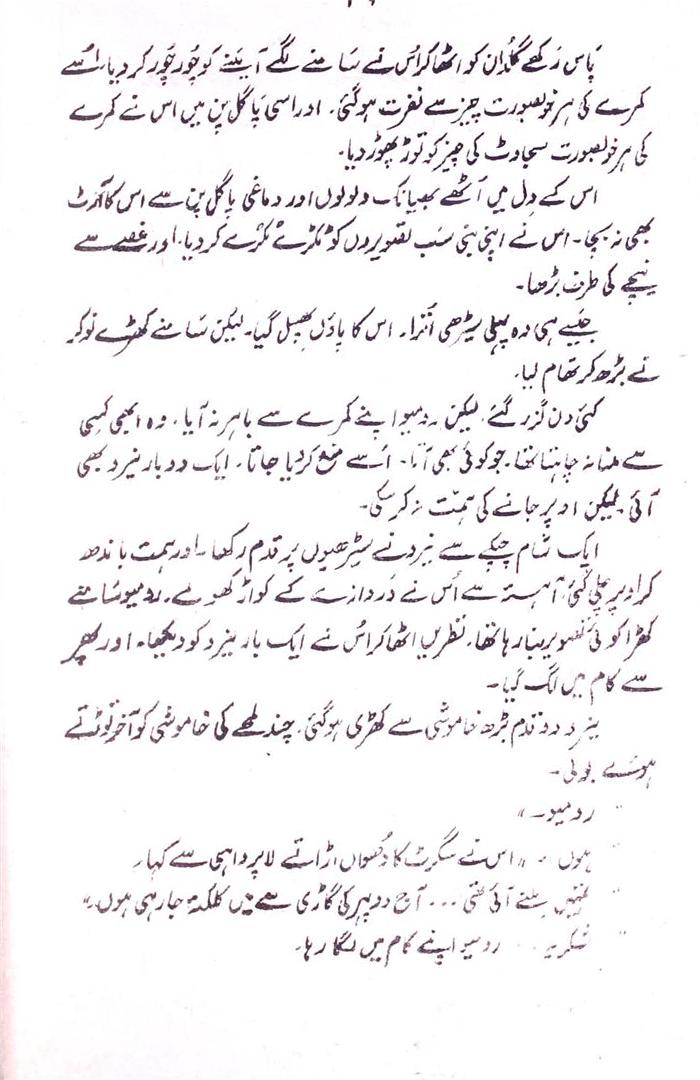 پاس رکھے گلدان کو اٹھا کر اُس نے سامنے لگے آیئنے کو چُور چُور کر دیا۔ اُسے
کمرے کی ہر خوبصورت چیز سے نفرت ہو گئی۔ اور اسی پاگل پن میں اس نے کمرے
کی ہر خوبصورت سجاوٹ کی چیز کو توڑ پھوڑ دیا۔
اس کے دِل میں اُٹھے بھیانک ولولوں اور دماغی پاگل پن سے اس کا آرٹ
بھی نہ بچا۔ اس نے اپنی بنی سَب تصویروں کو ٹکڑے ٹکڑے کر دیا، اور غصے سے
نیچے کی طرف بڑھا۔
جیسے ہی وہ پہلی سیڑھی اُترا۔ اس کا پاؤں پھسل گیا۔ لیکن سَامنے کھڑے نوکر
نے بڑھ کر تھام لیا۔
کئی دن گزر گئے، لیکن رومیو اپنے کمرے سے باہر نہ آیا۔ وہ ابھی کسی
سے ملنا نہ چاہتا تھا۔ جو کوئی بھی آتا۔ اُسے منع کر دیا جاتا۔ ایک دو بار نیرو بھی
آئی۔ لیکن اوپر جانے کی ہمّت نہ کر سکی۔
ایک شام چپکے سے نیرو نے سیڑھیوں پر قدم رکھا۔ اور ہمت باندھ
کر اوپر چلی گئی، آہستہ سے اُس نے دَروازے کے کواڑ کھولے۔ رومیو سَامنے
کھڑا کوئی تصویر بنا رہا تھا۔ نظریں اٹھا کر اُس نے ایک بار نیرو کو دیکھا۔ اور پھر
سے کام میں لگ گیا۔
نیرو دو قدم بڑھ خاموشی سے کھڑی ہو گئی، چند لمحے کی خاموشی کو آخر توڑتے
ہوئے بولی۔
" رومیو۔ "
" ہوں ۔ " اس نے سگرٹ کا دُھواں اڑاتے لاپرواہی سے کہا۔
" تمہیں ملنے آئی تھی ... آج دوپہر کی گاڑی سے میں کلکتہ جا رہی ہوں۔ "
" شکریہ ... رومیو اپنے کام میں لگا رہا۔